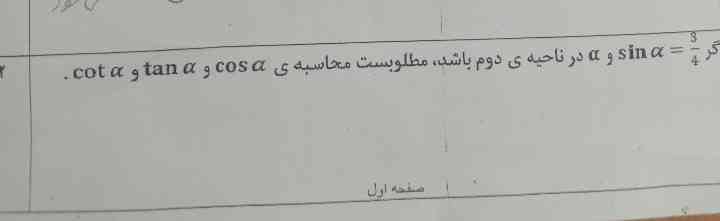 گر sin α = 3/4 و α در ناحیه ی دوم باشد، مطلوبست محاسبه ی cos α و tan α و cot α .
۲
صفحه اول